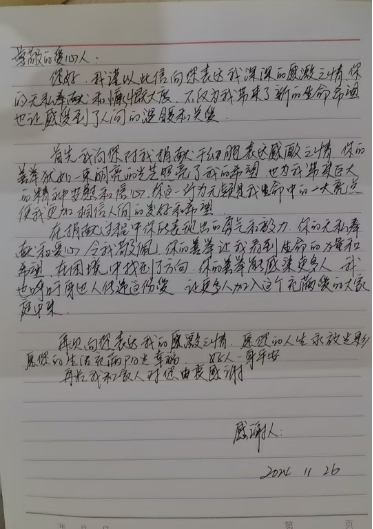 尊敬的爱心人:
你好,我谨以此信向你表达我深深的感激之情,你
的无私奉献和慷慨大度,不仅为我带来了新的生命希望
也让感受到了人间的温暖和关爱
首先我向你对我捐献干细胞表达感激之情,你的
善举犹如一束明亮的光照亮了我的希望,也为我带来巨大
的精神安慰和信心,你这一行为无疑是我生命中的一大亮点
使我更加相信人间的美好和希望
在捐献过程中你所表现出的勇气和毅力,你的无私奉
献和爱心,令我敬佩,你的善举让我看到生命的力量和
希望,在困境中找到了方向,你的善举能感染更多人,我
也呼吁身边人传递这份爱,让更多人加入这个充满爱的大家
庭中来
再次向您表达我的感激之情,愿您的人生永放光彩
愿您的生活充满阳光幸福,好人一身平安
再次我和家人对你由衷感谢
感谢人:
2024 11 26